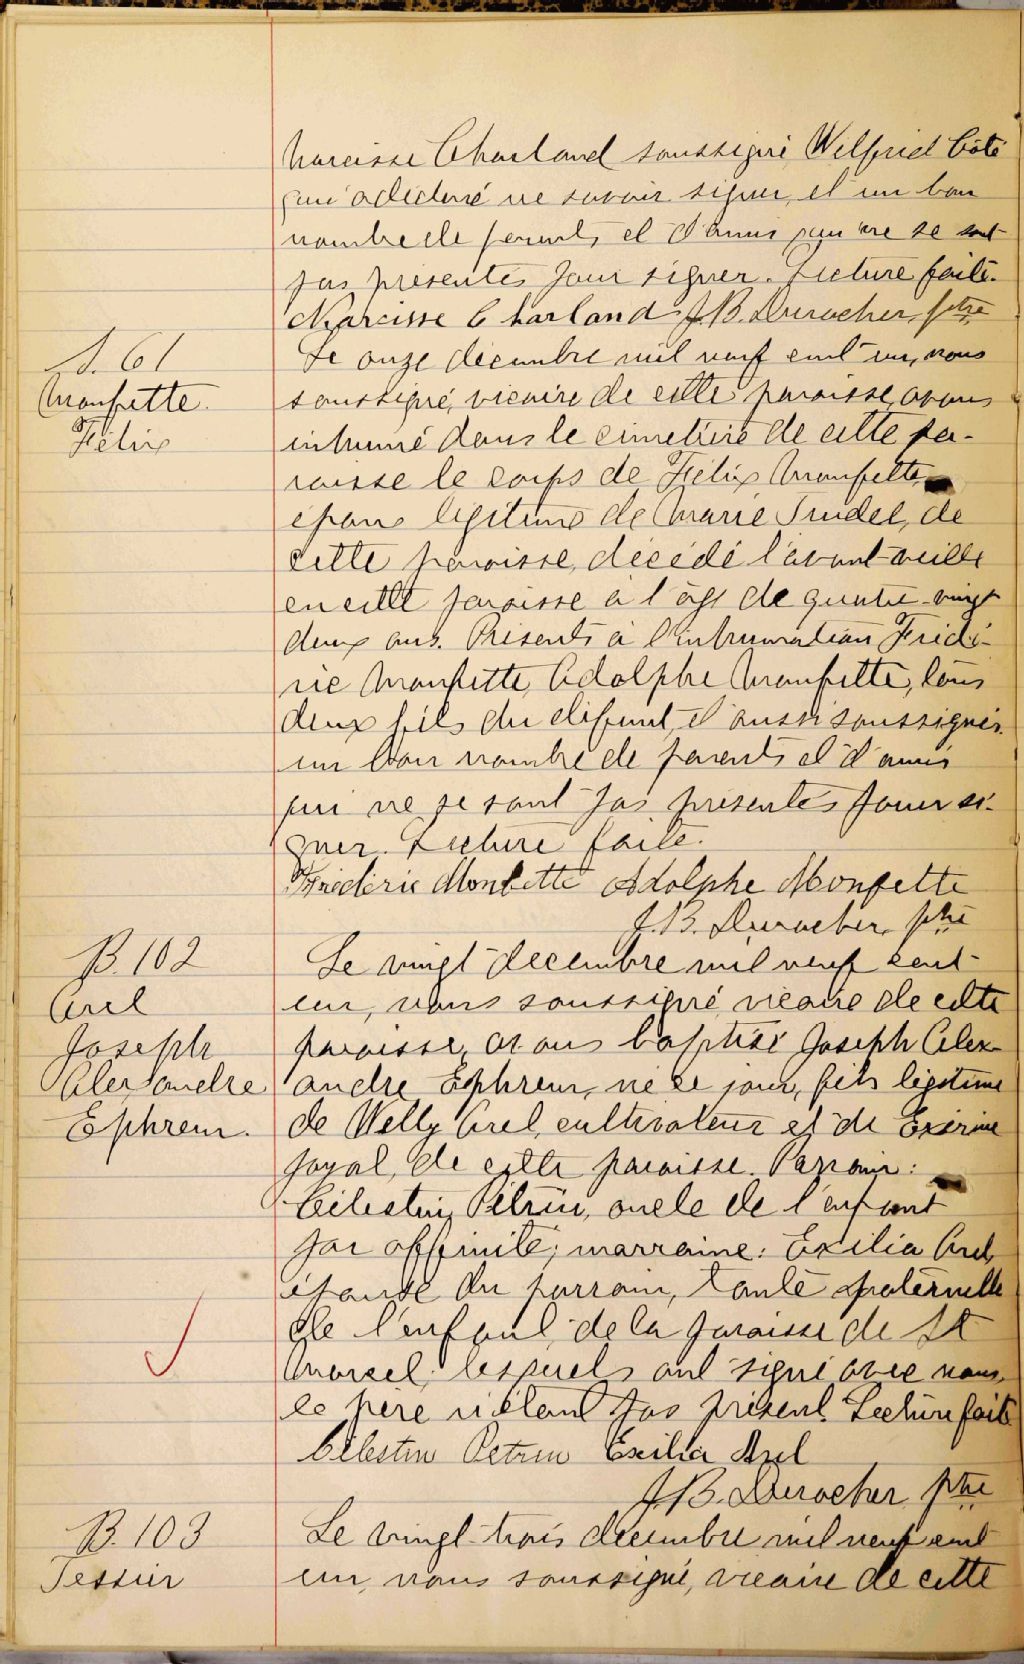 Narcisse Charland soussigné Wilfrid Côté
qui a déclaré ne savoir signer, et un bon
nombre de parents et d'amis qui ne se sont
pas présentés pour signer. Lecture faite.
Narcisse Charland J.B. Durocher, ptre
S. 61
Monfette
Félix
Le onze décembre mil neuf cent un, nous
soussigné, vicaire de cette paroisse, avons
inhumé dans le cimetière de cette pa-
roisse le corps de Félix Monfette,
époux légitime de Marie Trudel, de
cette paroisse, décédé l'avant-veille
en cette paroisse à l'âge de quatre-vingt
deux ans. Présents à l'inhumation Frédé-
ric Monfette, Adolphe Monfette, tous
deux fils du défunt, et aussi soussignés.
un bon nombre de parents et d'amis
qui ne se sont pas présentés pour si-
gner. Lecture faite.
Frédéric Monfette Adolphe Monfette
J.B. Durocher, ptre
B. 102
Arel
Joseph
Alexandre
Ephrem.
Le vingt décembre mil neuf cent-
un, nous soussigné, vicaire de cette
paroisse, avons baptisé Joseph Alex-
andre Ephrem, né ce jour, fils légitime
de Welly Arel, cultivateur et de Exérine
Joyal, de cette paroisse. Parrain:
Célestin Pétrin, oncle de l'enfant
par affinité; marraine: Exilia Arel,
épouse du parrain, tante paternelle
de l'enfant, de la paroisse de St
Marcel; lesquels ont signé avec nous,
le père n'étant pas présent. Lecture faite
Célestin Petrin Exilia Arel
J.B. Durocher, ptre
B. 103
Tessier
Le vingt-trois décembre mil neuf cent
un, nous soussigné, vicaire de cette